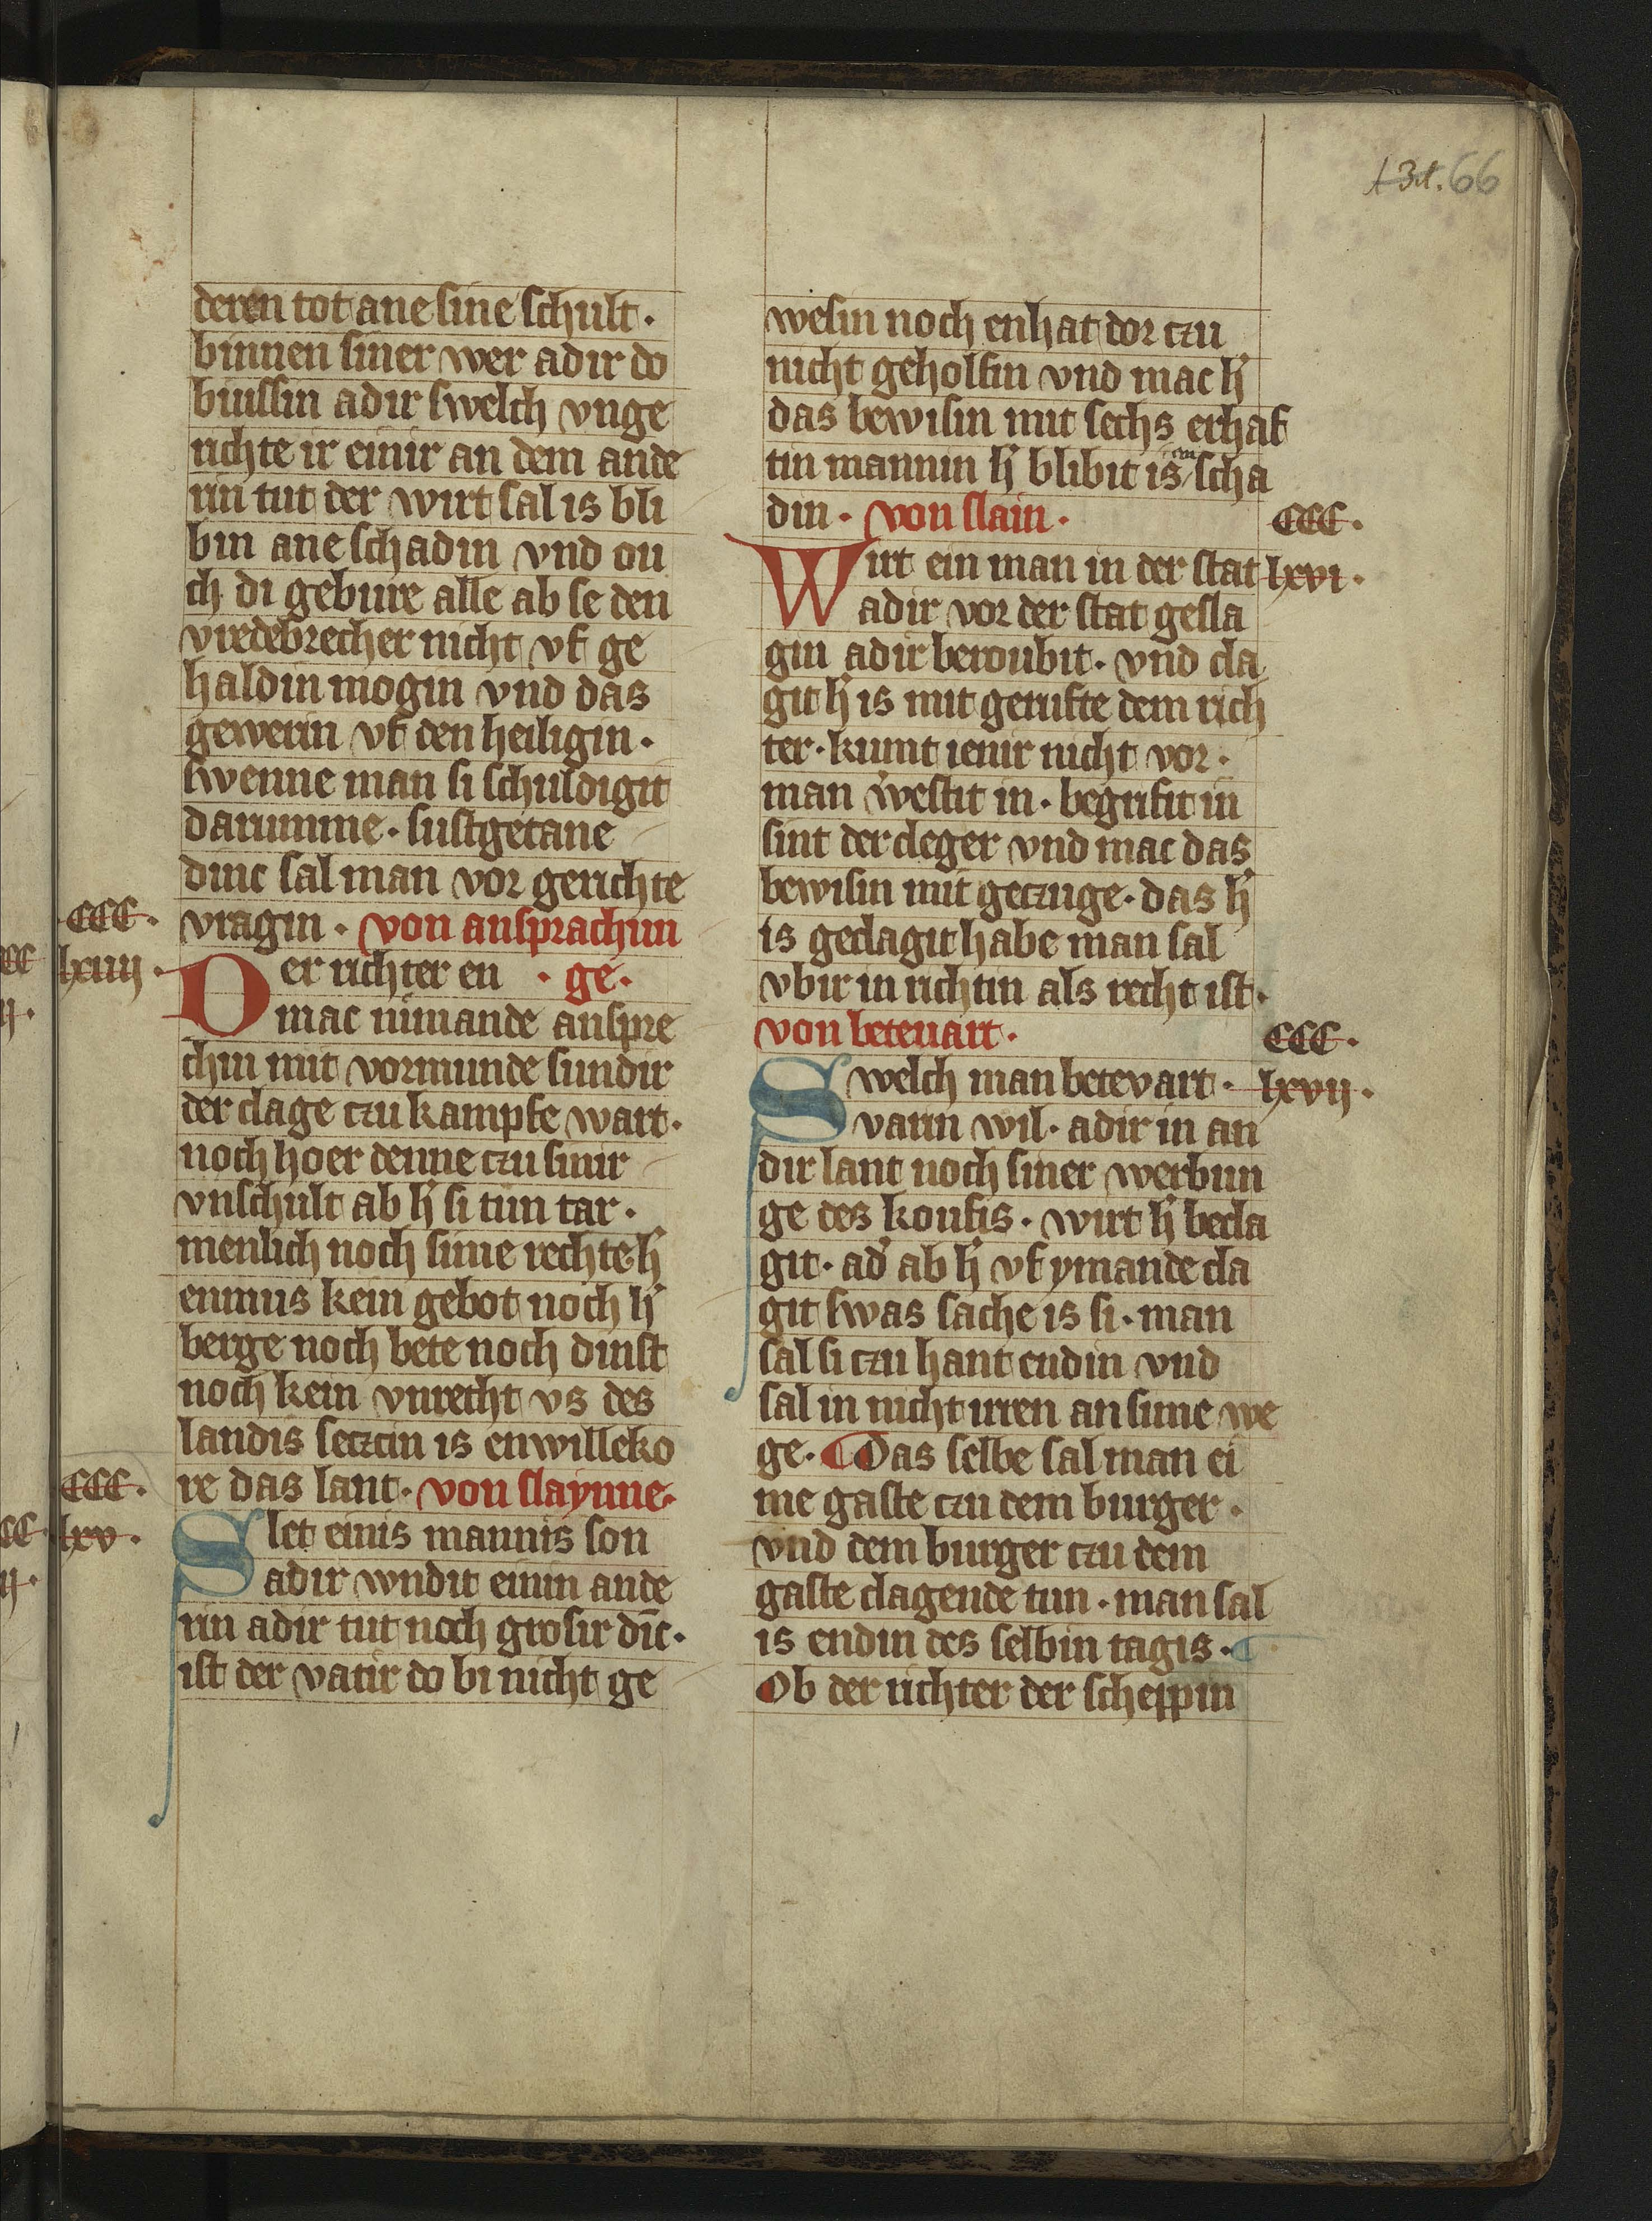 66
deren tot ane sine schult.
binnen siner wer adir do
buissin adir swelch vnge
richte ir einir an dem ande
rin tut der wirt sal is bli
bin ane schadin vnd ou
ch di gebure alle ab se den
vredebrecher nicht vf ge
haldin mogin vnd das
gewerin vf den heiligin.
swenne man si schuldigit
darumme. sustgetane
dinc sal man vor gerichte
CCC.
vragin. von ansprachun
lxiiij.
Der richter en . ge.
mac nimande anspre
chin mit vormunde sundir
der clage czu kampfe wart.
noch hoer denne czu sinir
vnschult ab h' si tun tar.
menlich noch sime rechte h'
enmus kein gebot noch h'
berge noch bete noch dinst
noch kein vnrecht vs des
landis seczcin is enwilleko
CCC.
re das lant. von slaynne.
lxv.
Slet einis mannis son
adir wndit einin ande
rin adir tut noch grosir din̄c.
ist der vatir do bi nicht ge
wesin noch enhat dor czu
nicht geholfin vnd mac h'
das bewisin mit sechs erhaf
tin mannin h' blibit is an scha
din. von slain.
CCC.
Wirt ein man in der stat
lxvi.
adir vor der stat gesla
gin adir beroubit. vnd cla
git h' is mit gerufte dem rich
ter. kumt ienir nicht vor.
man v'westit in. begrifit in
sint der cleger vnd mac das
bewisin mit geczuge. das h'
is geclagit habe man sal
vbir in richtin als recht ist.
von betevart.
CCC.
Swelch man betevart.
lxvij.
varin wil. adir in an
dir lant noch siner werbun
ge des koufis. wirt h' becla
git. ad' ab h' vf ymande cla
git swas sache is si. man
sal si czu hant endin vnd
sal in nicht irren an sime we
ge. Das selbe sal man ei
me gaste czu dem burger.
vnd dem burger czu dem
gaste clagende tun. man sal
is endin des selbin tagis.
Ob der richter der scheppin